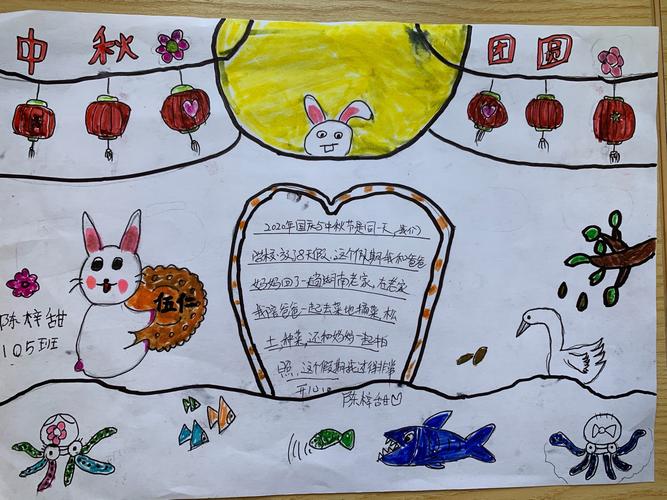 中秋
团圆
伍仁
陈梓甜
105班
2020年国庆与中秋节是同一天,我们
学校放了8天假,这个假期我和爸爸
妈妈回了一趟湖南老家,在老家
我陪爸爸一起去菜地摘菜,松
土,种菜,还和奶奶一起拍
照,这个假期我过得非常
开心。
陈梓甜